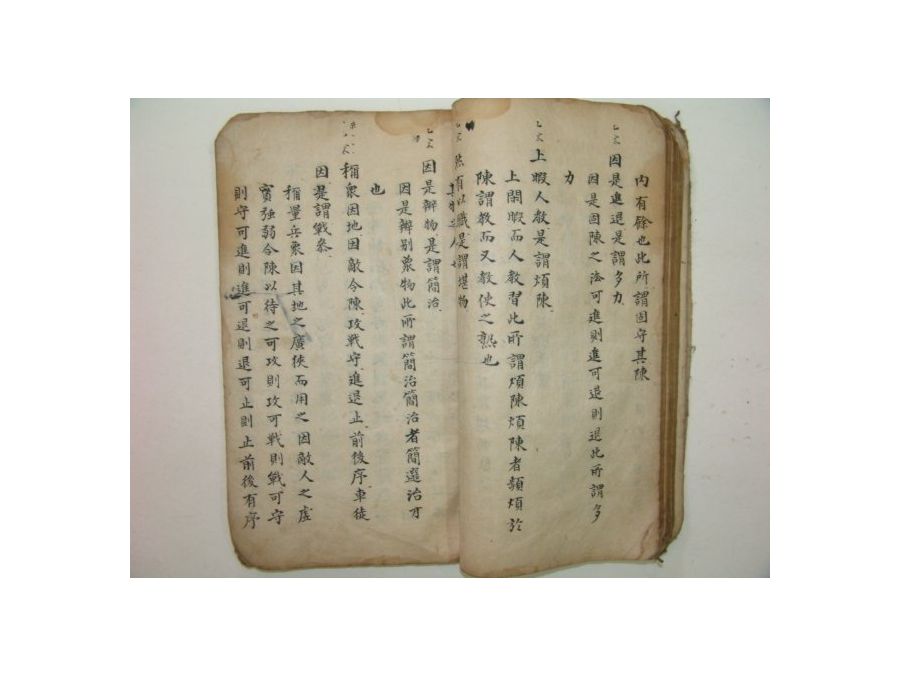 内有餘也此所謂固守其陳
因是進退是謂多力
因是固陳之法可進則進可退則退此所謂多
力
上暇人敎是謂煩陳
上閑暇而人敎習此所謂煩陳煩陳者頻煩於
陳謂敎而又敎使之熟也
然有以職是謂堪物
因是辨物是謂簡治
因是辨别衆物此所謂簡治簡治者簡選治才
也
稱衆因地因敵令陳攻戰守進退止前後序車徒
因是謂戰叅
稱量兵衆因其地之廣狹而用之因敵人之虛
實强弱令陳以待之可攻則攻可戰則戰可守
則守可進則進可退則退可止則止前後有序